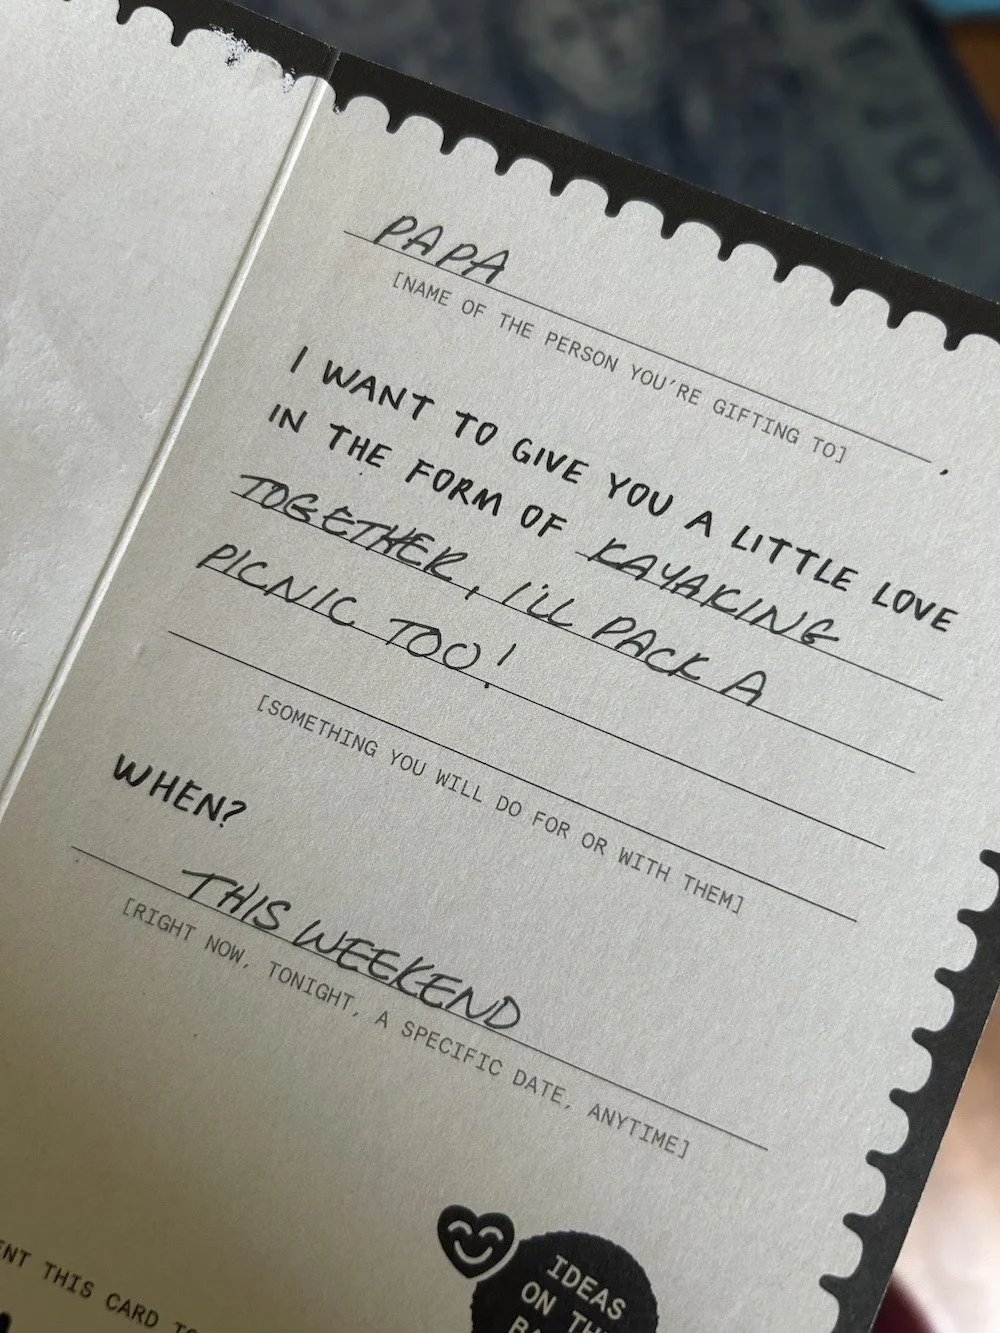 PAPA
[NAME OF THE PERSON YOU'RE GIFTING TO] ,
I WANT TO GIVE YOU A LITTLE LOVE
IN THE FORM OF KAYAKING
TOGETHER, I'LL PACK A
PICNIC TOO!
[SOMETHING YOU WILL DO FOR OR WITH THEM]
WHEN?
THIS WEEKEND
[RIGHT NOW, TONIGHT, A SPECIFIC DATE, ANYTIME]
THIS CARD
IDEAS
ON